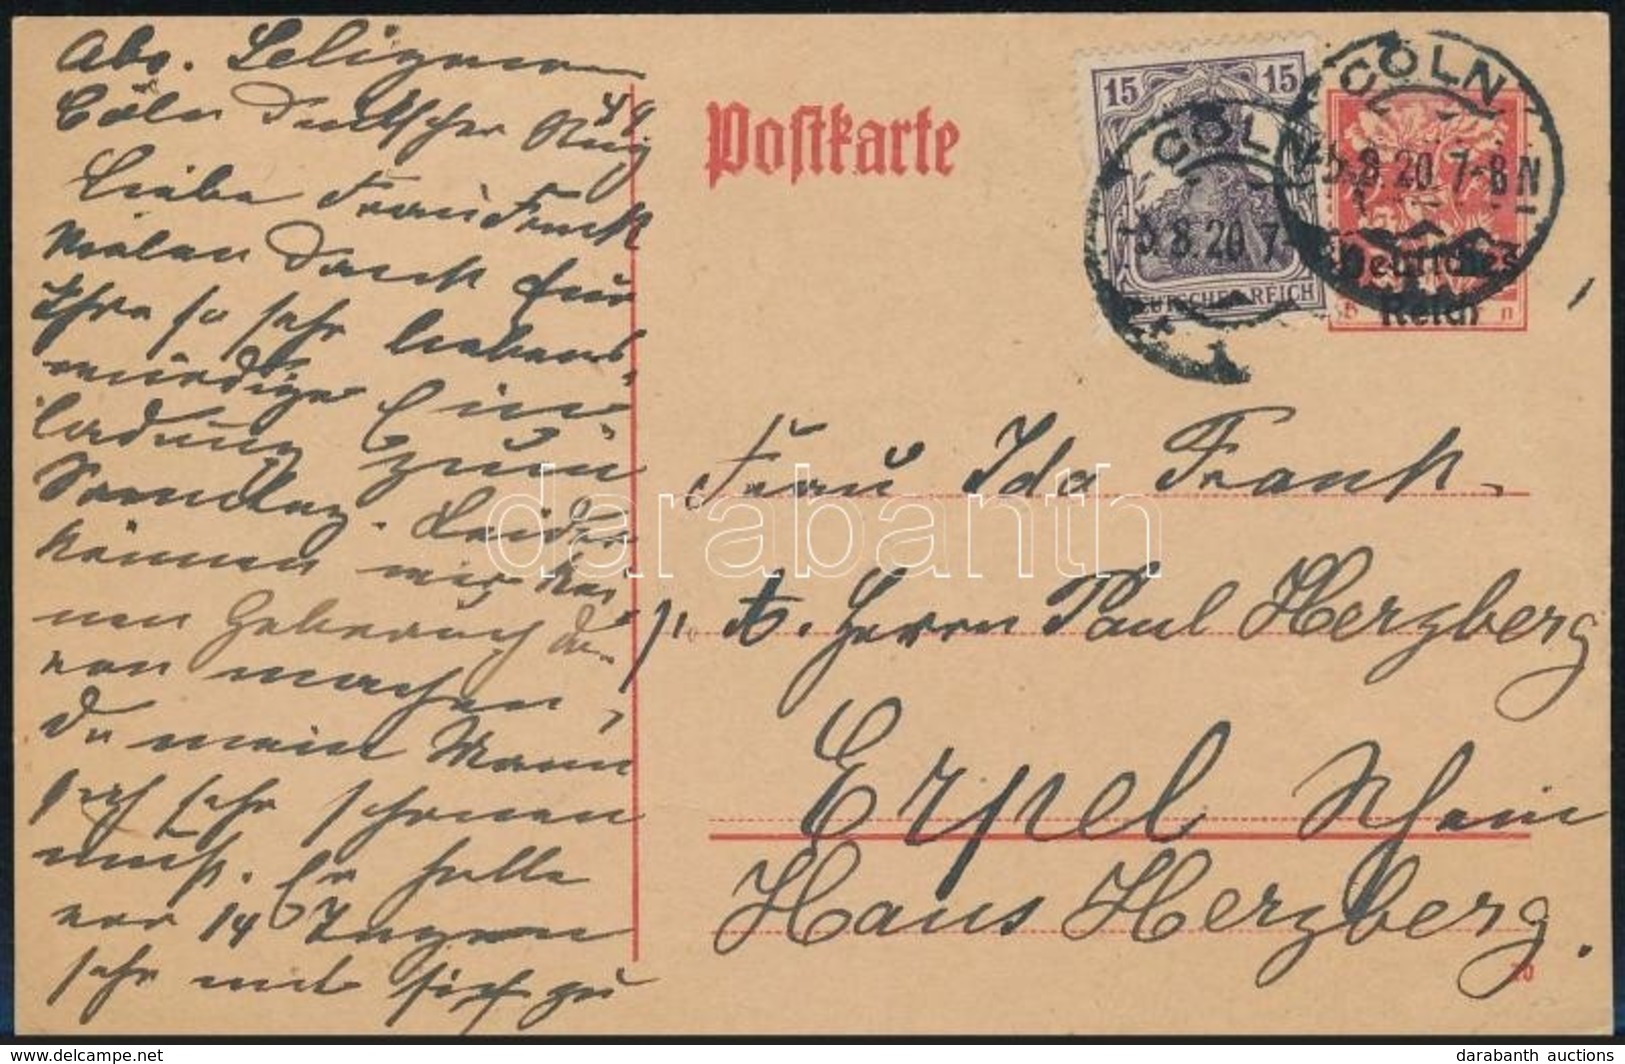 Abs. Seligmann
Cöln Deutscher Ring
49
Liebe Frau Frank
Vielen Dank für
Ihre so sehr liebens
würdige Ein
ladung zum
Sonntag. Leider
können wir kei
nen Gebrauch da
von machen,
da mein Mann
sich sehr schonen
muß. Er hatte
vor 14 Tagen
sehr mit sich zu
Postkarte
15 15
DEUTSCHES REICH
CÖLN
-5.8.20 7-
CÖLN
-5.8.20 7-8 N
Deutsches
Reich
Frau Ida Frank
p. A. Herrn Paul Herzberg
Erpel Rhein
Haus Herzberg.
20
darabanth
darabanth auctions